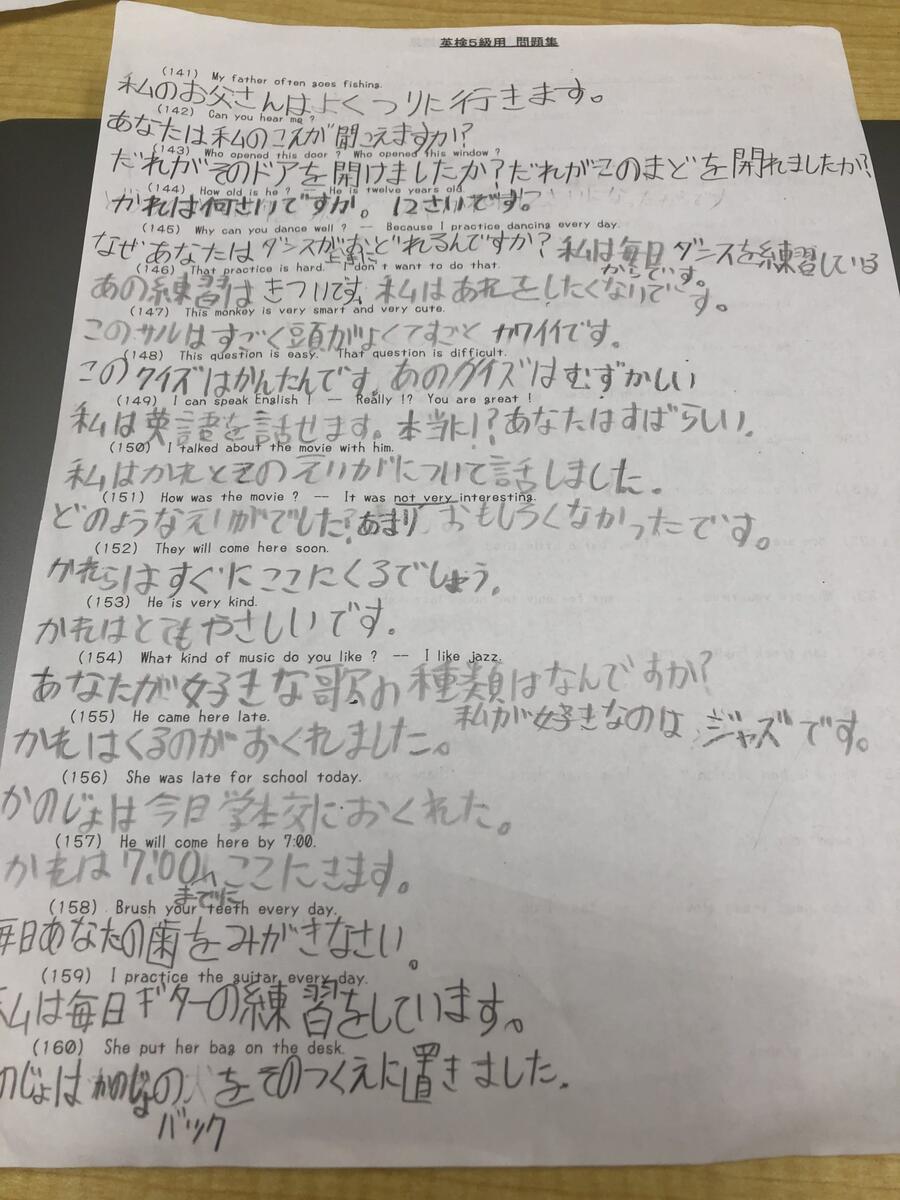 英検5級用 問題集
(141) My father often goes fishing.
私のお父さんはよくつりに行きます。
(142) Can you hear me ?
あなたは私のこえが聞こえますか?
(143) Who opened this door ? Who opened this window ?
だれがそのドアを開けましたか?だれがこのまどを開れましたか?
(144) How old is he ? -- He is twelve years old.
かれは何さいですか。 12さいです。
(145) Why can you dance well ? -- Because I practice dancing every day.
なぜあなたはダンスが上手におどれるんですか? 私は毎日ダンスを練習している
からです。
(146) That practice is hard. I don't want to do that.
あの練習はきついです。私はあれをしたくないです。
(147) This monkey is very smart and very cute.
このサルはすごく頭がよくてすごく カワイイです。
(148) This question is easy. That question is difficult.
このクイズはかんたんです。あのクイズはむずかしい
(149) I can speak English ! -- Really !? You are great !
私は英語を話せます。本当に!?あなたはすばらしい。
(150) I talked about the movie with him.
私はかれとそのえいがについて話しました。
(151) How was the movie ? -- It was not very interesting.
どのようなえいがでした?あまり おもしろくなかったです。
(152) They will come here soon.
かれらはすぐにここにくるでしょう。
(153) He is very kind.
かれはとてもやさしいです。
(154) What kind of music do you like ? -- I like jazz.
あなたが好きな歌の種類はなんですか?
私が好きなのは ジャズです。
(155) He came here late.
かれはくるのがおくれました。
(156) She was late for school today.
かのじょは今日学校におくれた。
(157) He will come here by 7:00.
かれは7:00までにここにきます。
(158) Brush your teeth every day.
毎日あなたの歯をみがきなさい。
(159) I practice the guitar every day.
私は毎日ギターの練習をしています。
(160) She put her bag on the desk.
のじょはかのじょの を そのつくえに置きました。
バック